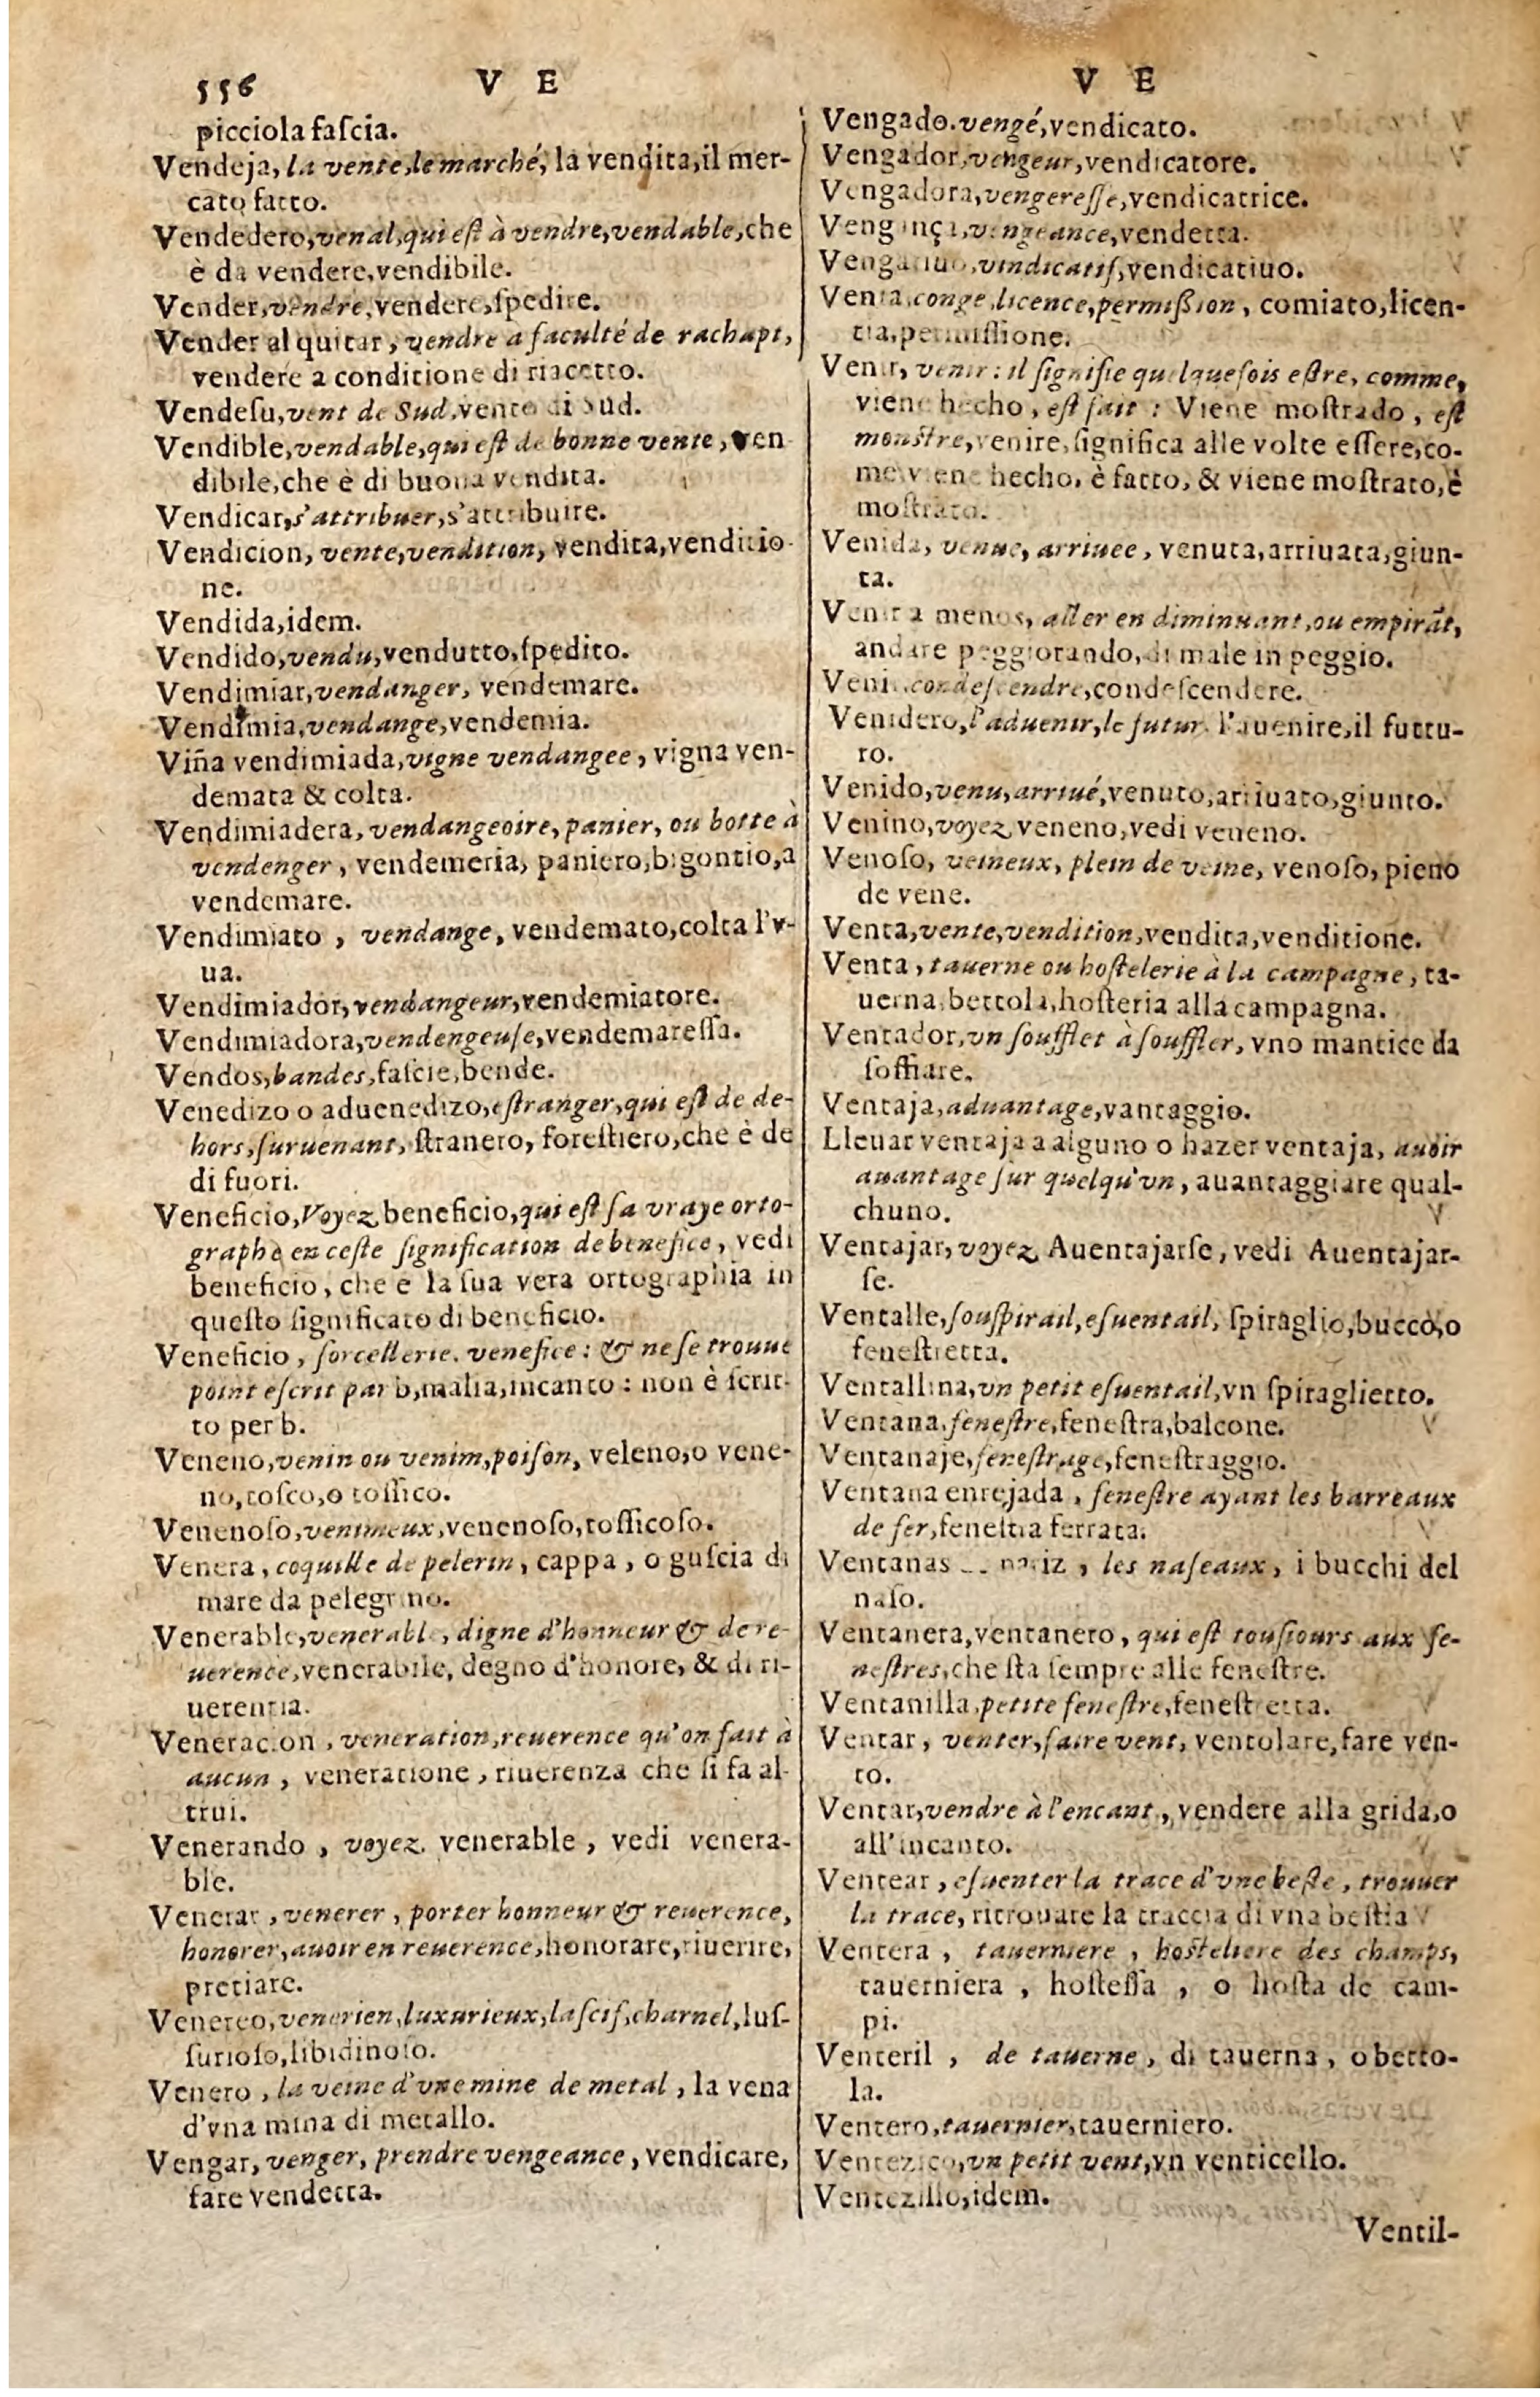 556 V E
picciola faſcia.
Vendeja, la vente, le marché, la vendita, il mer-
cato fatto.
Vendedero, venal, qui eſt à vendre, vendable, che
è da vendere, vendibile.
Vender, vendre, vendere, ſpedire.
Vender al quitar, vendre a faculté de rachapt,
vendere a conditione di riacetto.
Vendeſu, vent de Sud, vento di Sud.
Vendible, vendable, qui eſt de bonne vente, ven
dibile, che è di buona vendita.
Vendicar, s'attribuer, s'attribuire.
Vendicion, vente, vendition, vendita, venditio-
ne.
Vendida, idem.
Vendido, vendu, vendutto, ſpedito.
Vendimiar, vendanger, vendemare.
Vendimia, vendange, vendemia.
Viña vendimiada, vigne vendangee, vigna ven-
demata & colta.
Vendimiadera, vendangeoire, panier, ou botte à
vendenger, vendemeria, paniero, bigontio, a
vendemare.
Vendimiato, vendange, vendemato, colta l'v-
ua.
Vendimiador, vendangeur, vendemiatore.
Vendimiadora, vendengeuſe, vendemareſſa.
Vendos, bandes, faſcie, bende.
Venedizo o aduenedizo, eſtranger, qui eſt de de-
hors, ſuruenant, ſtranero, foreſtiero, che è de
di fuori.
Veneficio, Voyez beneficio, qui eſt ſa vraye orto-
graphe en ceſte ſignification de benefice, vedi
beneficio, che e la ſua vera ortographia in
queſto ſignificato di beneficio.
Veneficio, ſorcellerie, venefice: & ne ſe trouue
point eſcrit par b, malia, incanto: non è ſcrit-
to per b.
Veneno, venin ou venim, poiſon, veleno, o vene-
no, toſco, o toſſico.
Venenoſo, venimeux, venenoſo, toſſicoſo.
Venera, coquille de pelerin, cappa, o guſcia di
mare da pelegrino.
Venerable, venerable, digne d'honneur & de re-
uerence, venerabile, degno d'honore, & di ri-
uerentia.
Veneracion, veneration, reuerence qu'on fait à
aucun, veneratione, riuerenza che ſi fa al-
trui.
Venerando, voyez venerable, vedi venera-
ble.
Venerar, venerer, porter honneur & reuerence,
honorer, auoir en reuerence, honorare, riuerire,
pretiare.
Venereo, venerien, luxurieux, laſcif, charnel, luſ-
ſurioſo, libidinoſo.
Venero, la veine d'vne mine de metal, la vena
d'vna mina di metallo.
Vengar, venger, prendre vengeance, vendicare,
fare vendetta.
V E
Vengado, vengé, vendicato.
Vengador, vengeur, vendicatore.
Vengadora, vengereſſe, vendicatrice.
Vengança, vengeance, vendetta.
Vengatiuo, vindicatif, vendicatiuo.
Venia, conge, licence, permißion, comiato, licen-
tia, permiſſione.
Venir, venir: il ſignifie quelquefois eſtre, comme,
viene hecho, eſt fait: Viene moſtrado, eſt
monſtre, venire, ſignifica alle volte eſſere, co-
me viene hecho, è fatto, & viene moſtrato, è
moſtrato.
Venida, venue, arriuee, venuta, arriuata, giun-
ta.
Venir a menos, aller en diminuant, ou empirãt,
andare peggiorando, di male in peggio.
Veni, condeſcendre, condeſcendere.
Venidero, l'aduenir, le futur, l'auenire, il futtu-
ro.
Venido, venu, arriué, venuto, arriuato, giunto.
Venino, voyez veneno, vedi veneno.
Venoſo, veineux, plein de veine, venoſo, pieno
de vene.
Venta, vente, vendition, vendita, venditione.
Venta, tauerne ou hoſtelerie à la campagne, ta-
uerna, bettola, hoſteria alla campagna.
Ventador, vn ſoufflet à ſouffler, vno mantice da
ſoffiare.
Ventaja, aduantage, vantaggio.
Lleuar ventaja a alguno o hazer ventaja, auoir
auantage ſur quelqu'vn, auantaggiare qual-
chuno.
Ventajar, voyez Auentajarſe, vedi Auentajar-
ſe.
Ventalle, ſouſpirail, eſuentail, ſpiraglio, bucco, o
feneſtretta.
Ventallina, vn petit eſuentail, vn ſpiraglietto.
Ventana, feneſtre, feneſtra, balcone.
Ventanaje, feneſtrage, feneſtraggio.
Ventana enrejada, feneſtre ayant les barreaux
de fer, feneſtra ferrata.
Ventanas nariz, les naſeaux, i bucchi del
naſo.
Ventanera, ventanero, qui eſt touſiours aux fe-
neſtres, che ſta ſempre alle feneſtre.
Ventanilla, petite feneſtre, feneſtretta.
Ventar, venter, faire vent, ventolare, fare ven-
to.
Ventar, vendre à l'encant, vendere alla grida, o
all'incanto.
Ventear, eſuenter la trace d'vne beſte, trouuer
la trace, ritrouare la traccia di vna beſtia
Ventera, tauerniere, hoſteliere des champs,
tauerniera, hoſteſſa, o hoſta de cam-
pi.
Venteril, de tauerne, di tauerna, o betto-
la.
Ventero, tauernier, tauerniero.
Ventezico, vn petit vent, vn venticello.
Ventezillo, idem.
Ventil-